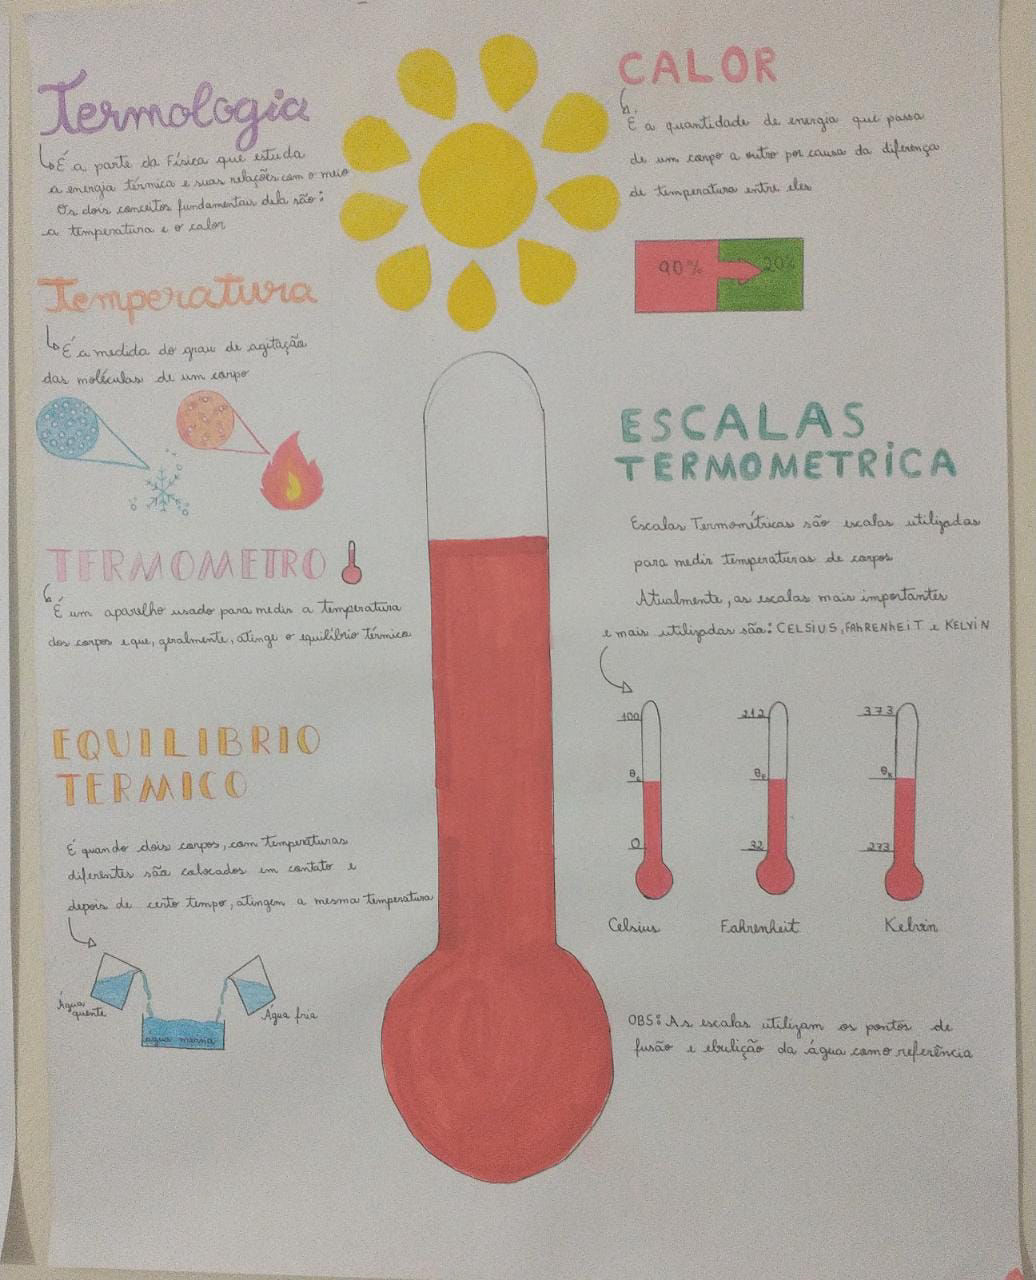 Termologia
É a parte da Física que estuda
a energia térmica e suas relações com o meio
Os dois conceitos fundamentais dela são:
a temperatura e o calor
Temperatura
É a medida do grau de agitação
das moléculas de um corpo
TERMOMETRO
É um aparelho usado para medir a temperatura
dos corpos e que, geralmente, atinge o equilíbrio térmico
EQUILIBRIO
TERMICO
É quando dois corpos, com temperaturas
diferentes são colocados em contato e
depois de certo tempo, atingem a mesma temperatura
Água
quente
Água fria
água morna
CALOR
É a quantidade de energia que passa
de um corpo a outro por causa da diferença
de temperatura entre eles
90%
20%
ESCALAS
TERMOMETRiCA
Escalas Termométricas são escalas utilizadas
para medir temperaturas de corpos
Atualmente, as escalas mais importantes
e mais utilizadas são: CELSiUS, FAHRENHEiT e KELViN
100
θc
0
Celsius
212
θF
32
Fahrenheit
373
θK
273
Kelvin
OBS: As escalas utilizam os pontos de
fusão e ebulição da água como referência